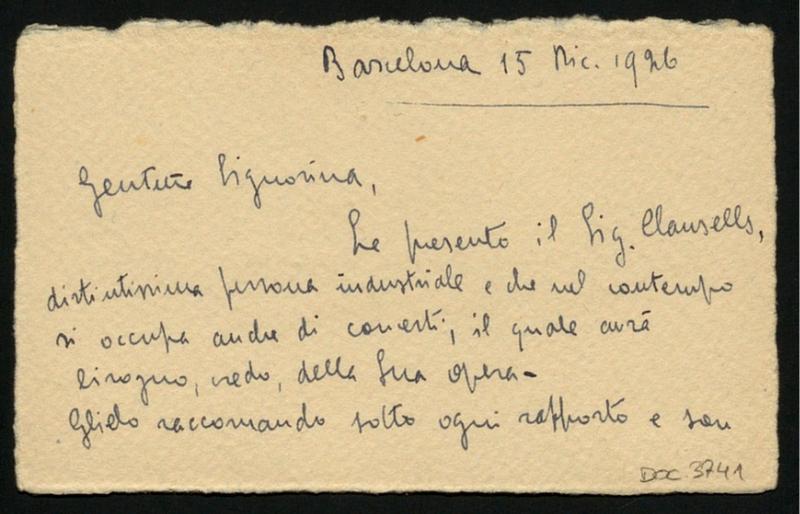 Barcelona 15 Dic. 1926
Gentma Signorina,
Le presento il Sig. Clausells,
distintissima persona industriale e che nel contempo
si occupa anche di concerti, il quale avrà
bisogno, credo, della Sua opera-
Glielo raccomando sotto ogni rapporto e son
DOC. 3741